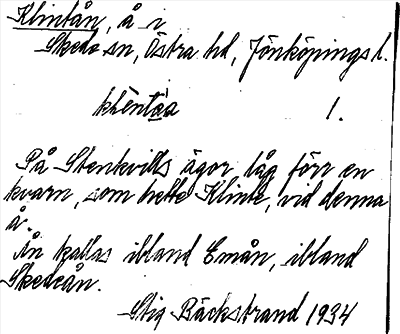 Klintån, å i
Skede sn, Östra hd, Jönköpings l.
klèntåa 1.
På Stenkvills ägor låg förr en
kvarn, som hette Klinte, vid denna
å.
Ån kallas ibland Emån, ibland
Skedeån.
Stig Bäckstrand 1934